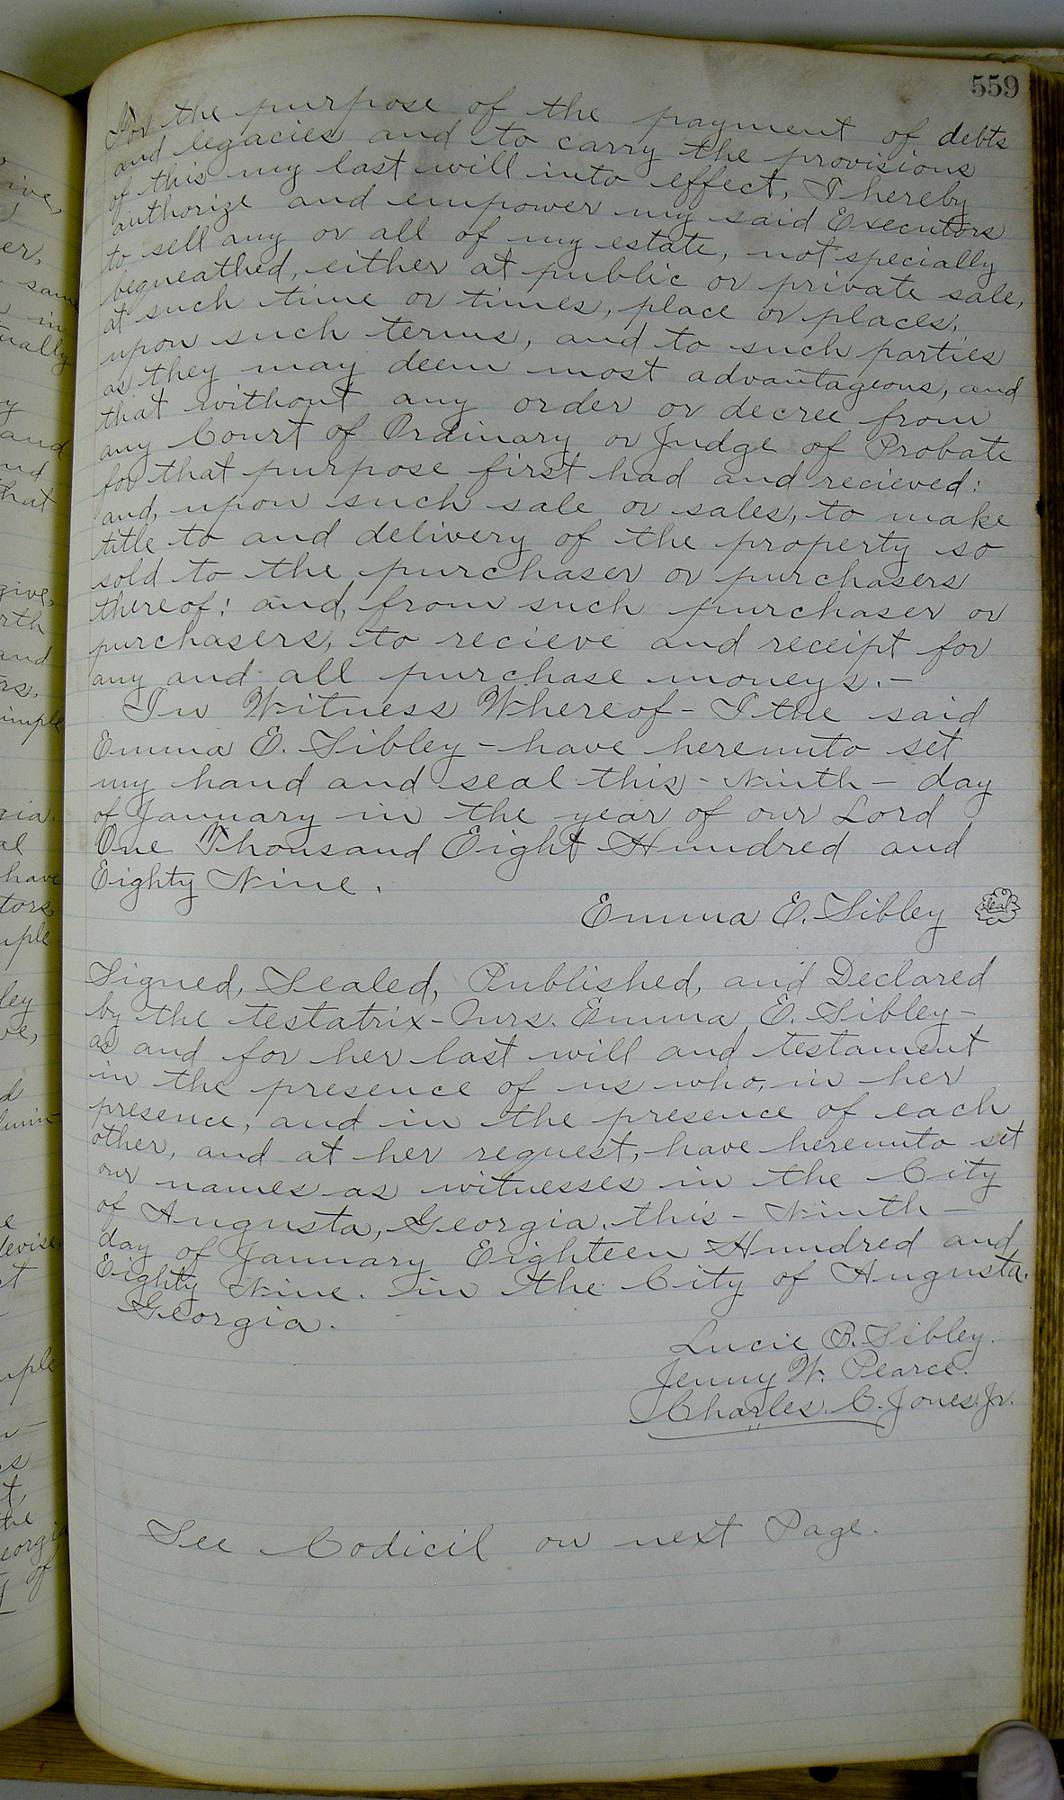 559
For the purpose of the payment of debts
and legacies and to carry the provisions
of this my last will into effect, I hereby
authorize and empower my said Executors
to sell any or all of my estate, not specially
bequeathed, either at public or private sale,
at such time or times, place or places,
upon such terms, and to such parties
as they may deem most advantageous, and
that without any order or decree from
any Court of Ordinary or Judge of Probate
for that purpose first had and recieved:
and, upon such sale or sales, to make
title to and delivery of the property so
sold to the purchaser or purchasers
thereof: and, from such purchaser or
purchasers, to recieve and receipt for
any and all purchase moneys.-
In Witness Whereof - I the said
Emma E. Sibley - have hereunto set
my hand and seal this - Ninth - day
of January in the year of our Lord
One Thousand Eight Hundred and
Eighty Nine.
Emma E. Sibley Seal
Signed, Sealed, Published, and Declared
by the testatrix - Mrs. Emma E. Sibley -
as and for her last will and testament
in the presence of us who, in her
presence, and in the presence of each
other, and at her request, have hereunto set
our names as witnesses in the City
of Augusta, Georgia, this - Ninth -
day of January Eighteen Hundred and
Eighty Nine. in the City of Augusta.
Georgia.
Lucie B. Sibley.
Jenny W. Pearce.
Charles. C. Jones. Jr.
See Codicil on next Page.